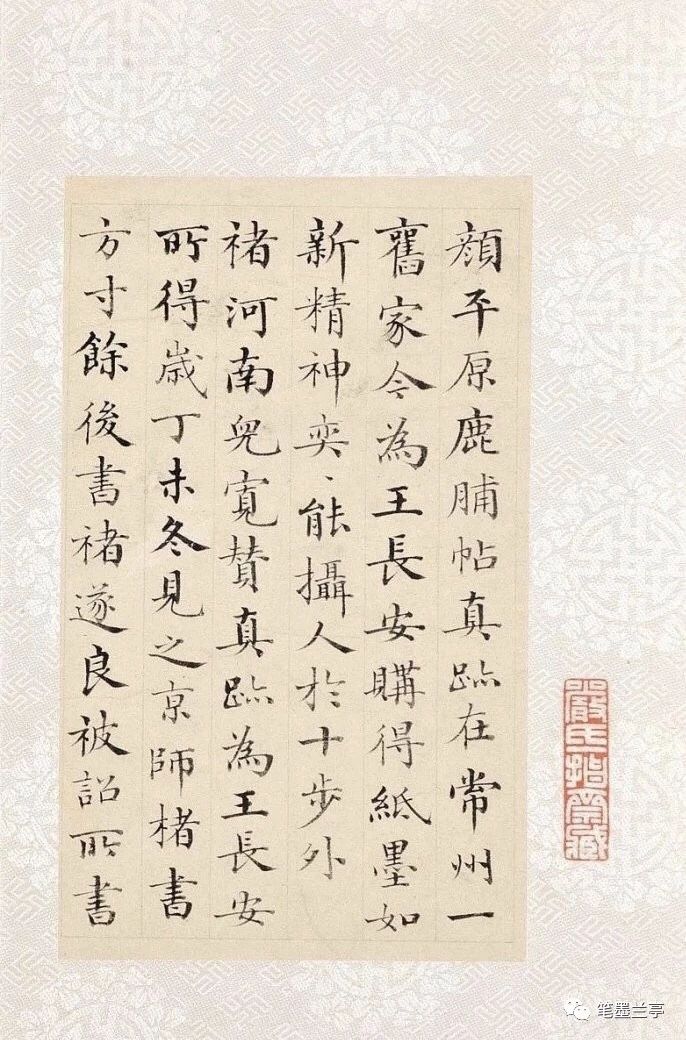 顔平原鹿脯帖真跡在常州一
舊家今為王長安購得紙墨如
新精神奕、能攝人於十步外
褚河南兒寬贊真跡為王長安
所得歲丁未冬見之京師楮書
方寸餘後書褚遂良被詔所書
嚴氏藏
笔墨兰亭